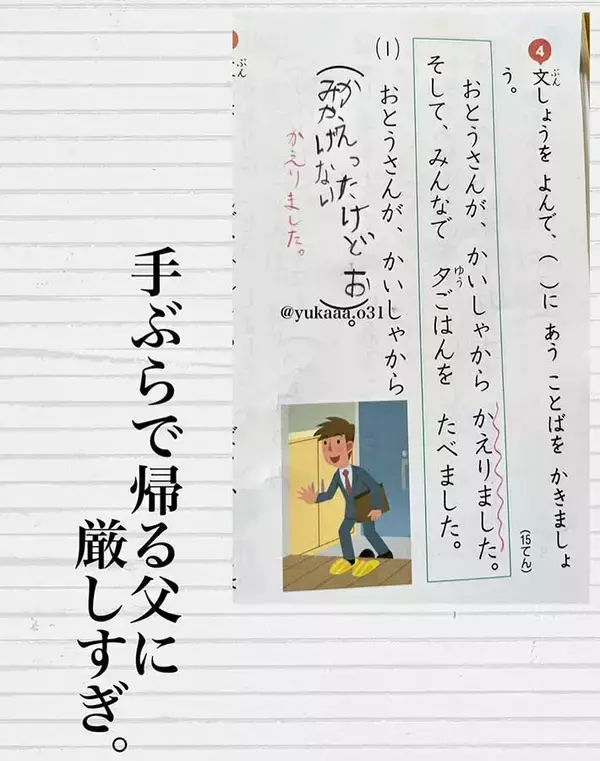 4 文しょうを よんで、( )に あう ことばを かきましょ
ぶん
う。
(15てん)
おとうさんが、かいしゃから かえりました。
そして、みんなで 夕ごはんを たべました。
ゆう
(1) おとうさんが、かいしゃから
(かえったけど お)。
みやげない
かえりました。
@yukaaa.o31
手ぶらで帰る父に
厳しすぎ。